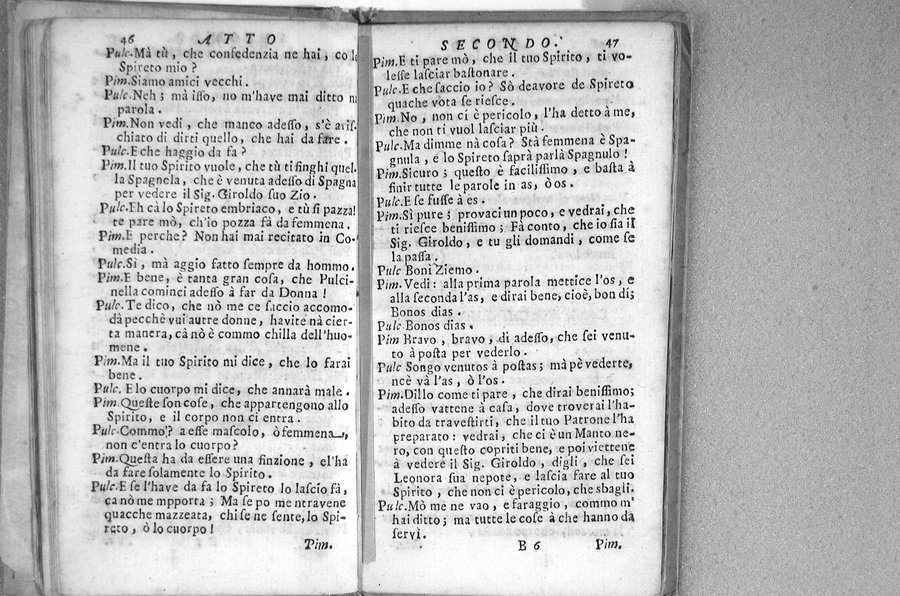 46 ATTO
Pulc.Mà tù, che confedenzia ne hai, co lo
Spireto mio?
Pim.Siamo amici vecchi.
Pulc.Neh; mà isso, no m'have mai ditto
parola.
Pim.Non vedi, che manco adesso, s'è
chiato di dirti quello, che hai da fare.
Pulc.E che haggio da fa?
Pim.Il tuo Spirito vuole, che tù ti finghi quel
la Spagnela, che è venuta adesso di Spagna
per vedere il Sig. Giroldo suo Zio.
Pulc.Eh cà lo Spireto embriaco, e tù sì pazza!
te pare mò, ch'io pozza fà da femmena.
Pim.E perche? Non hai mai recitato in Co-
media.
Pulc.Sì, mà aggio fatto sempre da hommo.
Pim.E bene, è tanta gran cosa, che Pulci-
nella cominci adesso à far da Donna!
Pulc.Te dico, che nò me ce saccio accomo-
dà pecchè vui autre donne, havite nà cier-
ta manera, cà nò è commo chilla dell'huo-
mene.
Pim.Ma il tuo Spirito mi dice, che lo farai
bene.
Pulc. E lo cuorpo mi dice, che annarà male.
Pim.Queste son cose, che appartengono allo
Spirito, e il corpo non ci entra.
Pulc.Commo? a esse mascolo, ò femmena,
non c'entra lo cuorpo?
Pim.Questa ha da essere una finzione, el'hà
da fare solamente lo Spirito.
Pulc.E se l'have da fa lo Spireto lo lascio fà,
ca nò me mpporta; Ma se po me ntravene
quacche mazzeata, chi se ne sente, lo Spi-
reto, ò lo cuorpo!
Pim.
SECONDO. 47
Pim.E ti pare mò, che il tuo Spirito, ti vo-
lesse lasciar bastonare.
Pulc.E che saccio io? Sò deavore de Spireto
quache vota se riesce.
Pim.No, non ci è pericolo, l'ha detto à me,
che non ti vuol lasciar più.
Pulc.Ma dimme nà cosa? Stà femmena è Spa-
gnula, e lo Spireto saprà parlà Spagnulo!
Pim.Sicuro; questo è facilissimo, e basta à
finir tutte le parole in as, ò os.
Pulc.E se fusse à es.
Pim.Sì pure; provaci un poco, e vedrai, che
ti riesce benissimo; Fà conto, che io sia il
Sig. Giroldo, e tu gli domandi, come se
la passa.
Pulc Bonì Ziemo.
Pim.Vedi: alla prima parola mettice l'os, e
alla seconda l'as, e dirai bene, cioè, bon dì;
Bonos dias.
Pulc.Bonos dias.
Pim Bravo, bravo, dì adesso, che sei venu-
to à posta per vederlo.
Pulc Songo venutos à postas; mà pè vederte,
ncè và l'as, ò l'os.
Pim.Dillo come ti pare, che dirai benissimo;
adesso vattene à casa, dove troverai l'ha-
bito da travestirti, che il tuo Patrone l'ha
preparato: vedrai, che ci è un Manto ne-
ro, con questo copriti bene, e poi viettene
à vedere il Sig. Giroldo, digli, che sei
Leonora sua nepote, e lascia fare al tuo
Spirito, che non ci è pericolo, che sbagli.
Pulc.Mò me ne vao, e faraggio, commo m'
hai ditto; ma tutte le cose à che hanno da
servì.
B 6 Pim.